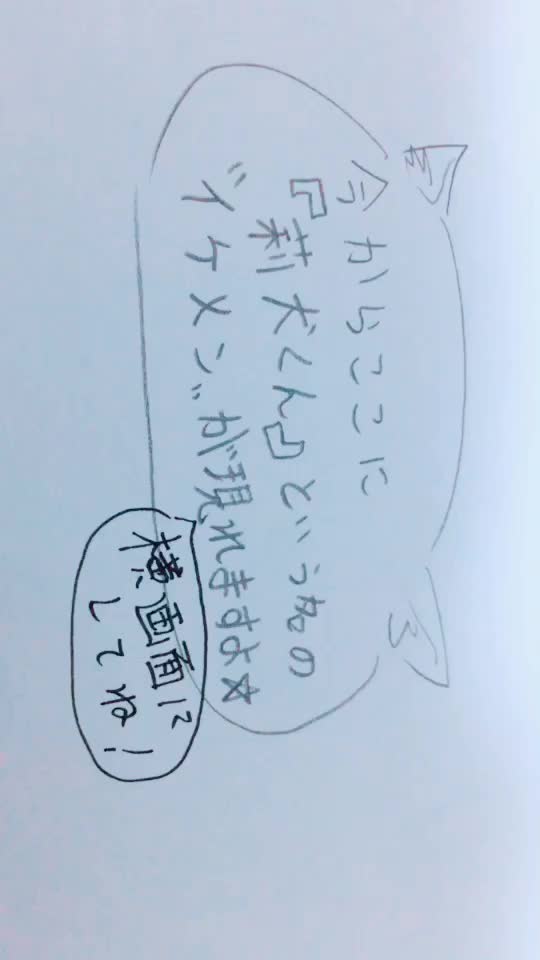 今からここに
『莉犬くん』という名の
"イケメン"が現れますよ☆
横画面に
してね!